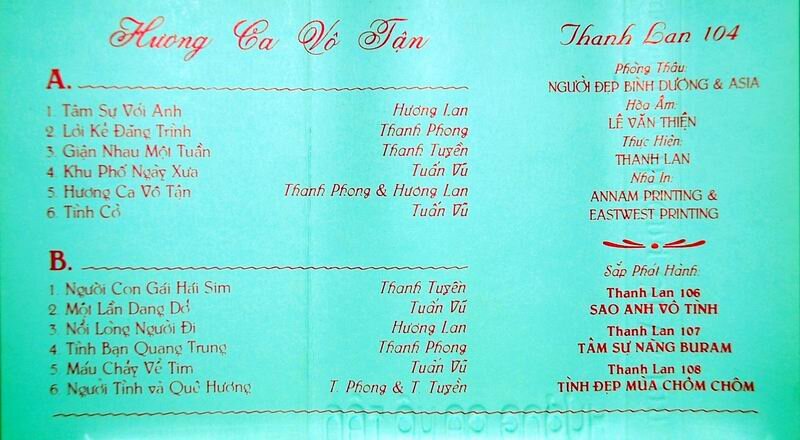 Hương Ca Vô Tận
A.
1. Tâm Sự Với Anh Hương Lan
2. Lời Kẻ Đăng Trình Thanh Phong
3. Giận Nhau Một Tuần Thanh Tuyền
4. Khu Phố Ngày Xưa Tuấn Vũ
5. Hương Ca Vô Tận Thanh Phong & Hương Lan
6. Tình Cờ Tuấn Vũ
B.
1. Người Con Gái Hái Sim Thanh Tuyền
2. Một Lần Dang Dở Tuấn Vũ
3. Nổi Lòng Người Đi Hương Lan
4. Tình Bạn Quang Trung Thanh Phong
5. Máu Chảy Về Tim Tuấn Vũ
6. Người Tình và Quê Hương T. Phong & T. Tuyền
Thanh Lan 104
Phòng Thâu:
NGƯỜI ĐẸP BÌNH DƯƠNG & ASIA
Hòa Âm:
LÊ VĂN THIỆN
Thực Hiện:
THANH LAN
Nhà In:
ANNAM PRINTING &
EASTWEST PRINTING
Sắp Phát Hành:
Thanh Lan 106
SAO ANH VÔ TÌNH
Thanh Lan 107
TÂM SỰ NÀNG BURAM
Thanh Lan 108
TÌNH ĐẸP MÙA CHÔM CHÔM